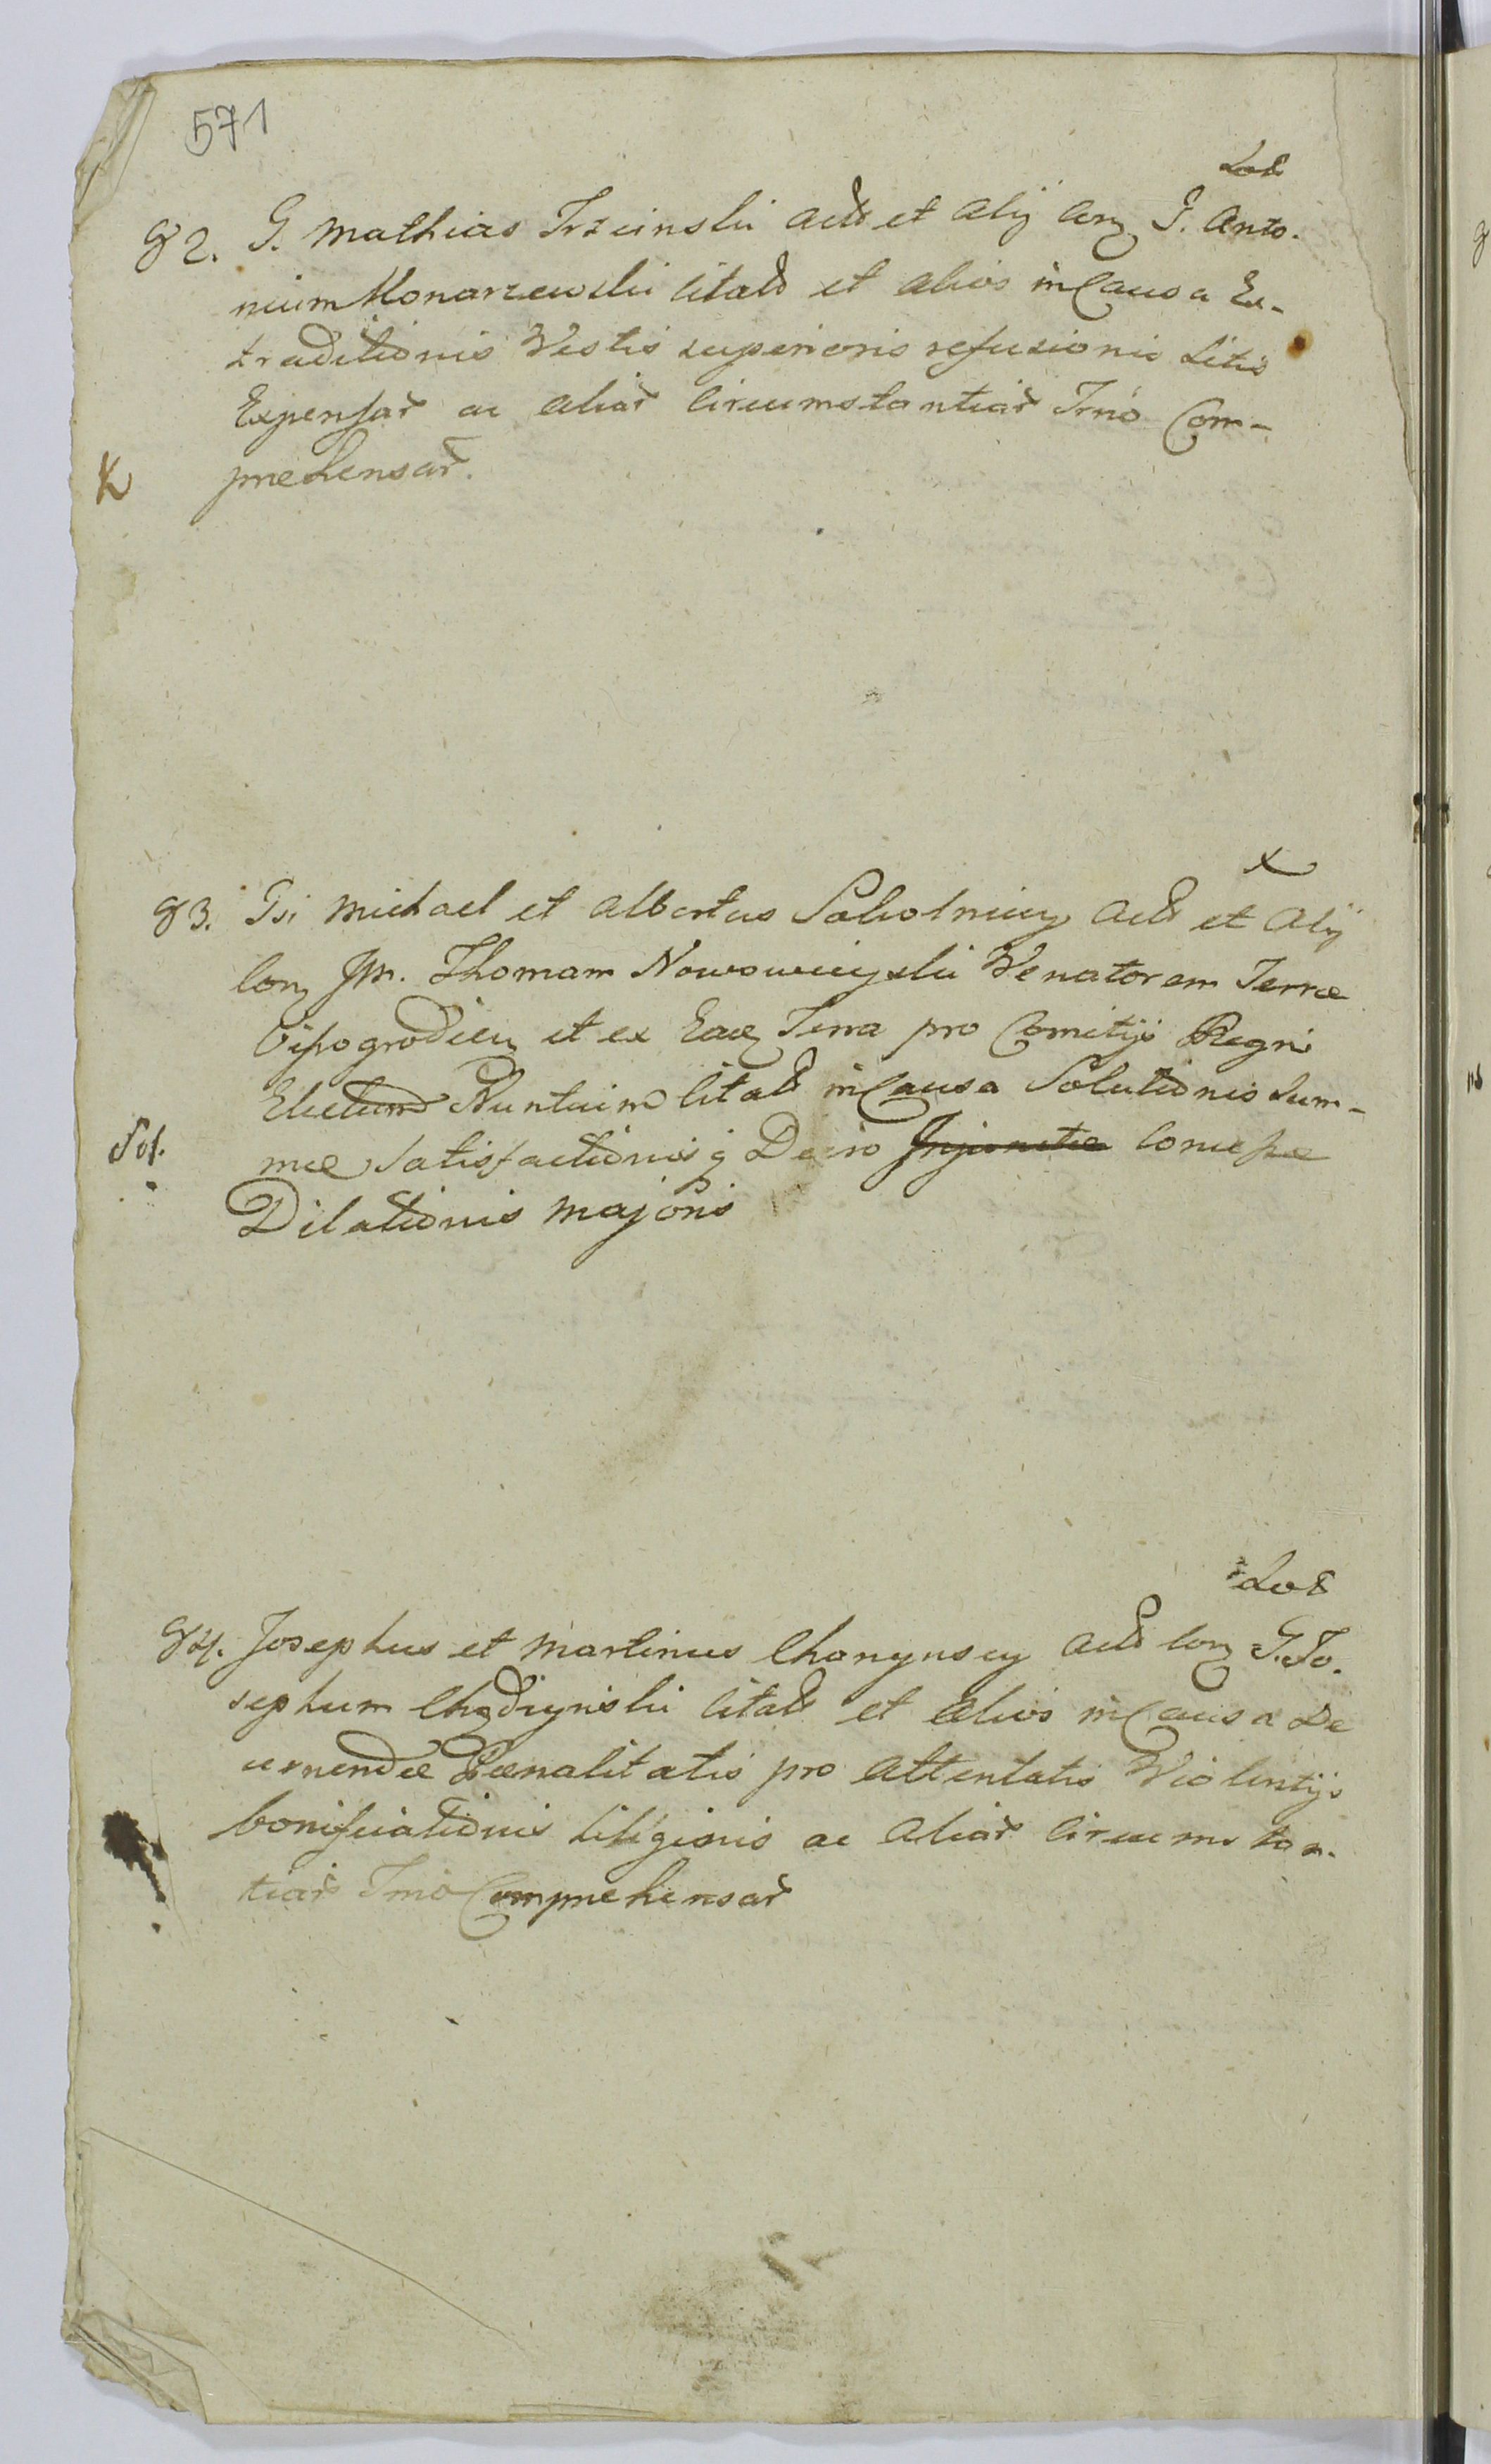 571
Lok
82. G. Mathias Trzcinski Actt et Alij Con G. Anto-
nium Konarzewski Citatt et Alios in Causa Ex-
traditionis Vestis superioris refusionis Litis
Expensar ac Aliar Circumstantiar Trno Com-
K prehensar.
X
83. Gsi Michael et Albertus Sokolniccy Actt et Alij
Con M. Thomam Nowowieyski Venatorem Terræ
Visogrodien et ex Eade Terra pro Comitijs Regni
Electum Nuntium Citatt in Causa Solutionis Sum-
Sol. mæ Satisfactionisq Decro Injunctæ Concessæ
Dilationis Majoris
Lok
84. Josephus et Martinus Chonynscy Actt Con G. Jo-
sephum Chądzynski Citatt et Alios in Causa De
cernendæ Pœnalitatis pro Attentatis Violentijs
bonificationis ac Aliar Circumstan-
tiar Trno Comprehensar